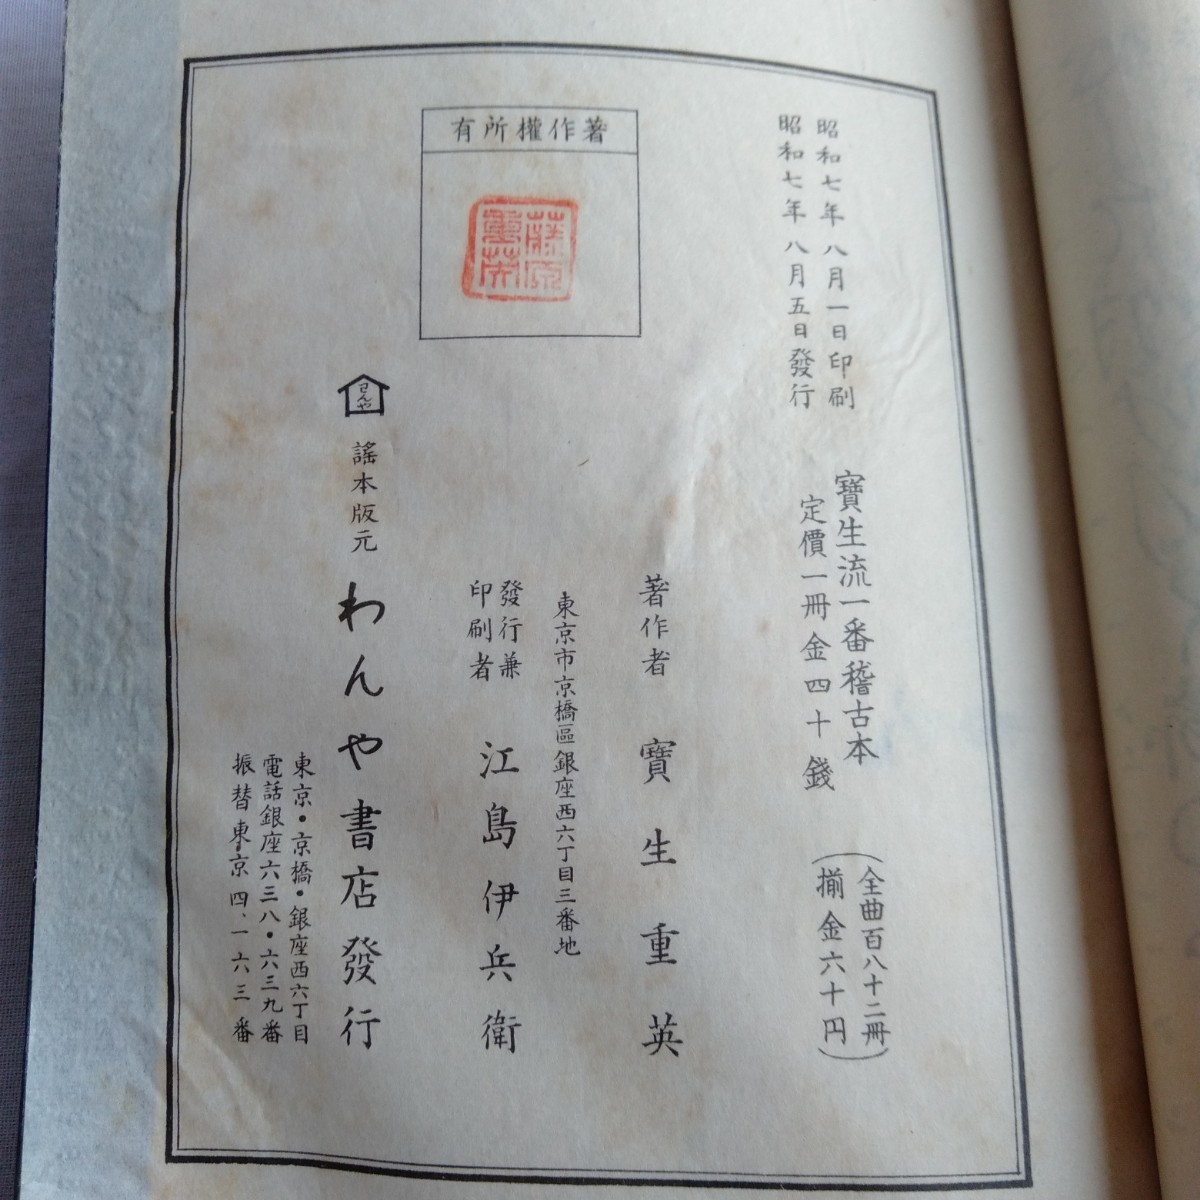 昭和七年八月一日印刷
昭和七年八月五日發行
寶生流一番稽古本
定價一冊金四十錢
(全曲百八十二冊
揃金六十円)
著作權所有
藤原
重英
著作者 寶生重英
東京市京橋區銀座西六丁目三番地
發行兼
印刷者 江島伊兵衞
わんや
謠本版元 わんや書店發行
東京・京橋・銀座西六丁目
電話銀座六三八・六三九番
振替東京四、一六三番